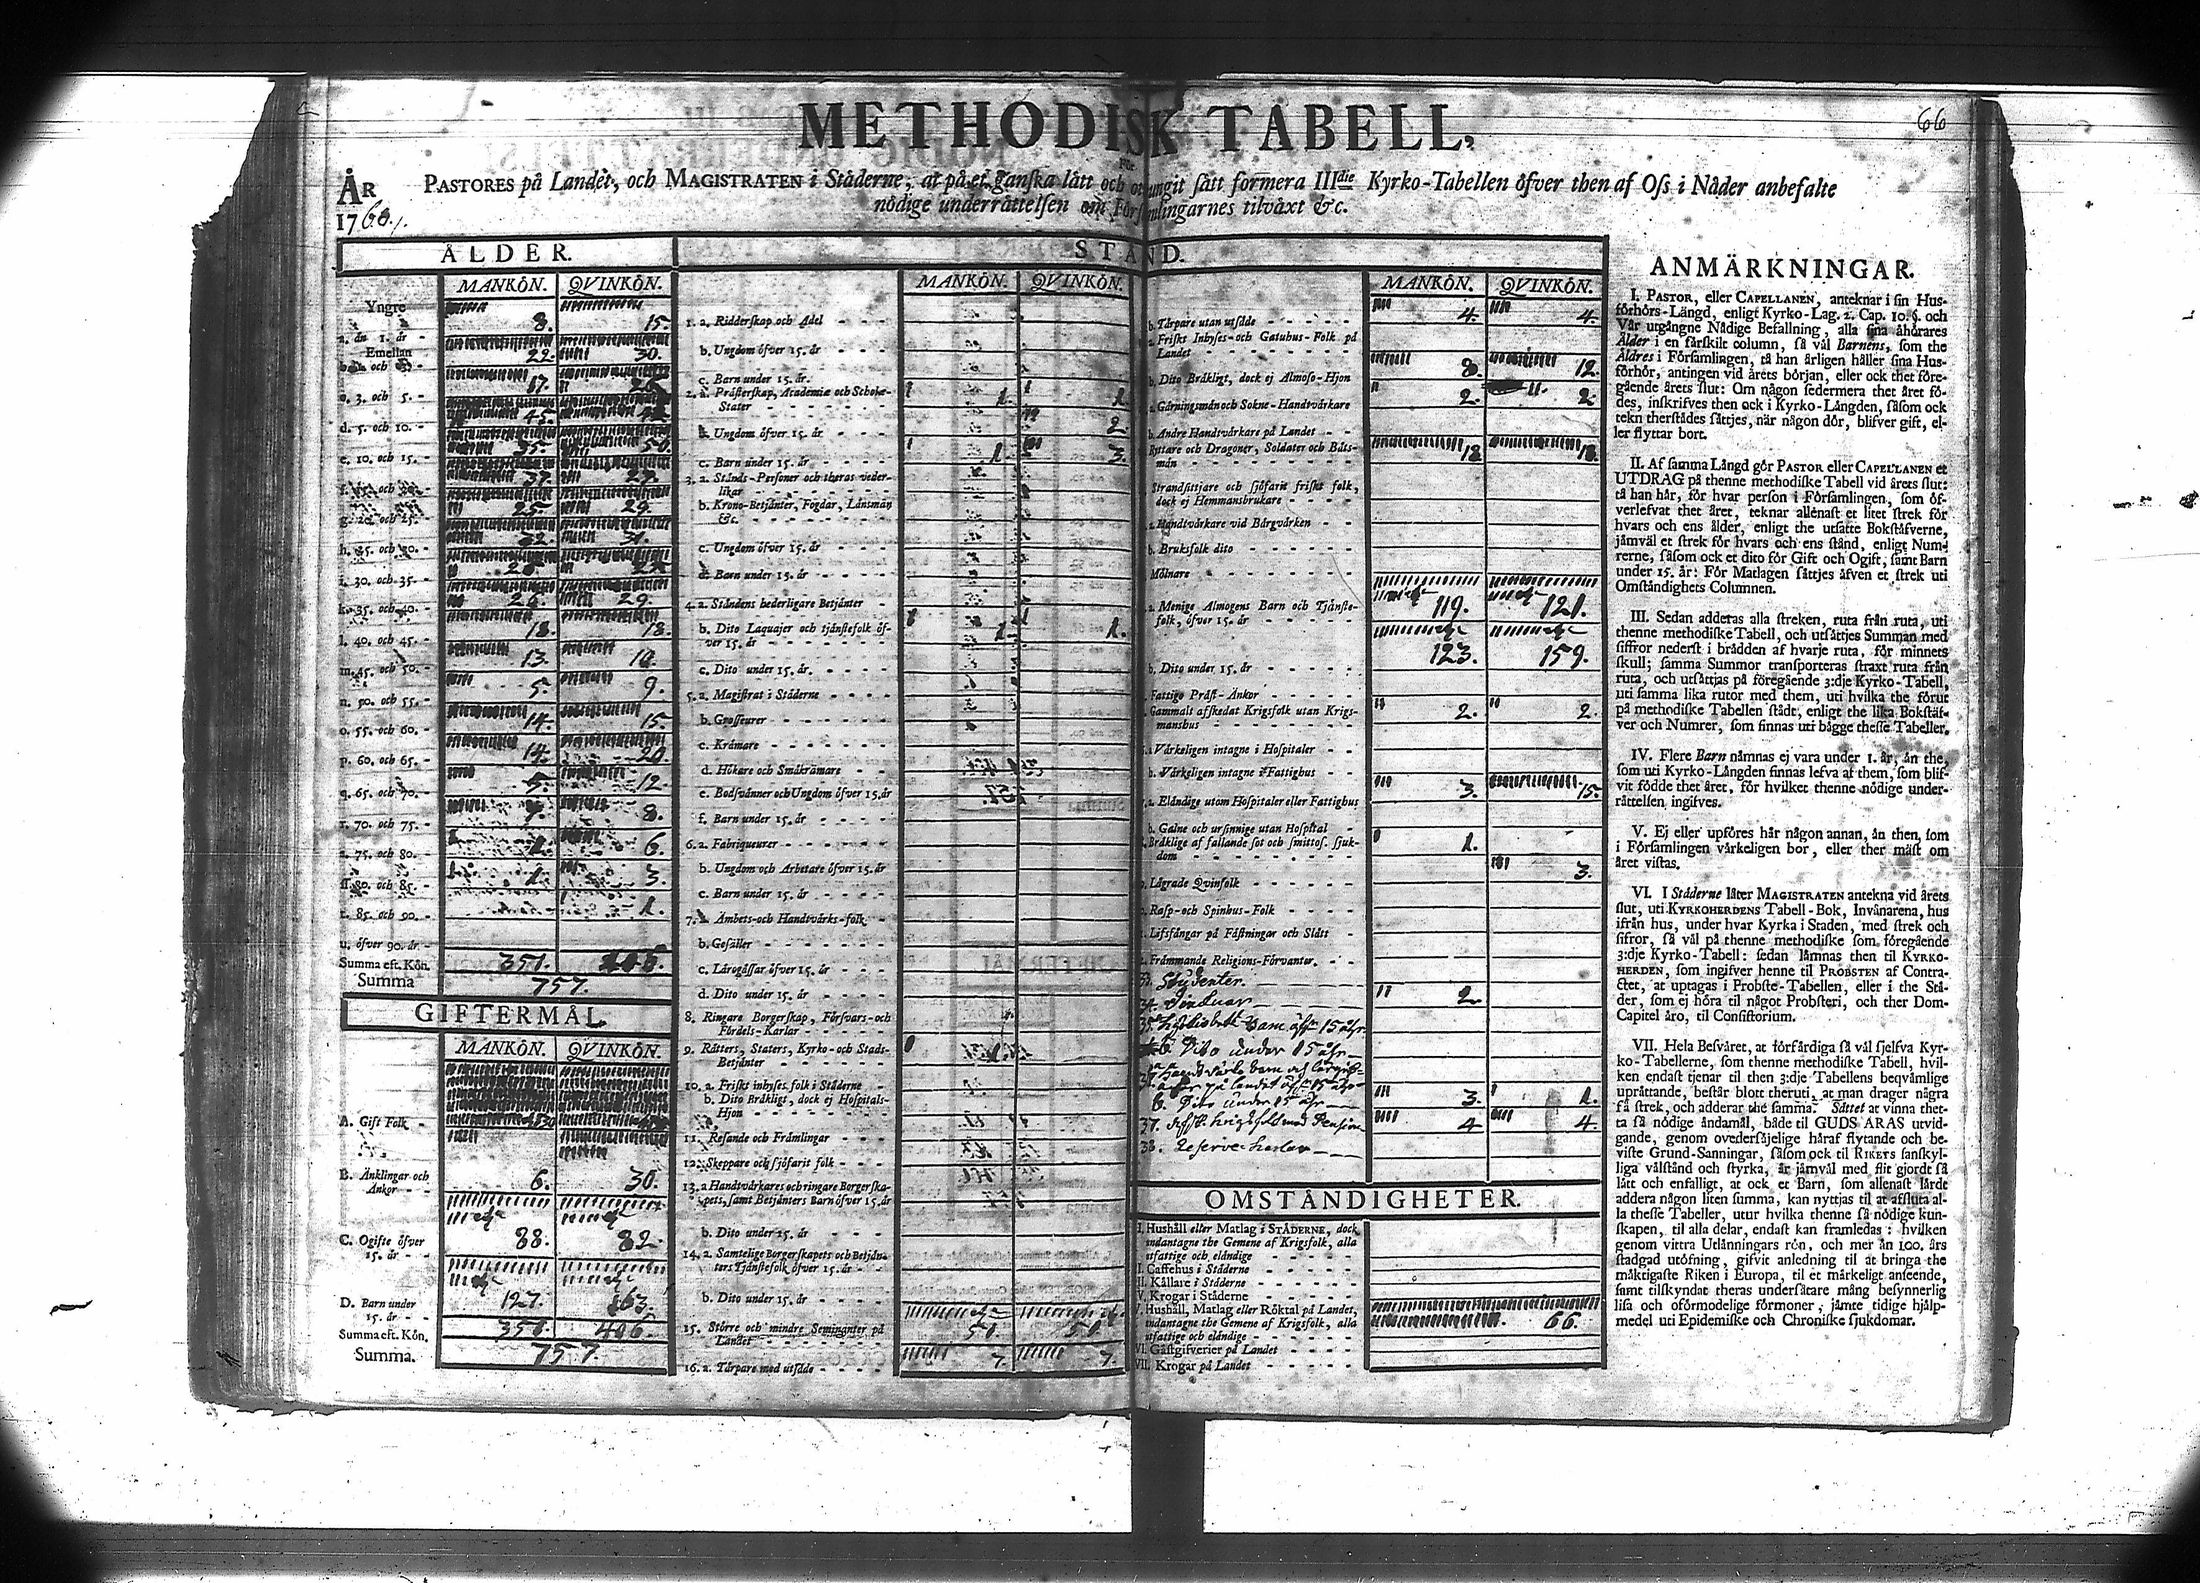 66
METHODISK TABELL,
För
ÅR PASTORES på Landet, och MAGISTRATEN i Städerne, at på et ganska lätt och otvungit sätt formera IIIdie Kyrko-Tabellen öfver then af Oss i Nåder anbefalte
1760. nödige underrättelsen om Församlingarnes tilväxt &c.
ÅLDER. STÅND.
MANKÖN. QVINKÖN.
Yngre
a. än 1. år - 8. 15.
Emellan
22. 30.
c. 3. och 5. - 17.
d. 5. och 10. - 45.
e. 10. och 15. - 35. 50.
37. 29.
g. 20. och 25. - 25. 29.
h. 25. och 30. - 31.
i. 30. och 35. -
k. 35. och 40. - 29.
l. 40. och 45. - 18. 18.
m. 45. och 50. - 13. 10.
n. 50. och 55. - 5. 9.
o. 55. och 60. - 14. 15
p. 60. och 65. - 14. 20
q. 65. och 70. - 5. 12.
r. 70. och 75. - 8.
s. 75. och 80. - 1. 6.
ſſ. 80. och 85. - 1. 3.
t. 85. och 90. - 1.
u. öfver 90. år -
Summa eft. Kön. 351.
Summa 757.
GIFTERMÅL
MANKÖN. QVINKÖN.
A. Gift Folk -
B. Änklingar och
Änkor - - 6. 30.
C. Ogifte öfver
15. år - - 88. 82.
D. Barn under
15. år - - 127. 163.
Summa eft. Kön. 351. 406.
Summa. 757.
MANKÖN. QVINKÖN.
1. a. Ridderskap och Adel
b. Ungdom öfver 15. år
c. Barn under 15. år.
2. a. Prästerskap, Academiæ och Schole-
Stater 1. 1.
b. Ungdom öfver 15. år 2.
c. Barn under 15. år 1. 3.
3. a. Stånds-Personer och theras veder-
likar
b. Krono-Betjänter, Fogdar, Länsmän
&c.
c. Ungdom öfver 15. år
d. Barn under 15. år
4. a. Ståndens hederligare Betjänter
b. Dito Laquajer och tjänstefolk öf-
ver 15. år 1. 1.
c. Dito under 15. år.
5. a. Magistrat i Städerne
b. Grosseurer
c. Krämare
d. Hökare och Småkrämare
e. Bodsvänner och Ungdom öfver 15. år
f. Barn under 15. år
6. a. Fabriqueurer
b. Ungdom och Arbetare öfver 15. år
c. Barn under 15. år
7. a. Ämbets-och Handtvärks-folk
b. Gesäller
c. Lärogåssar öfver 15. år
d. Dito under 15. år
8. Ringare Borgerskap, Försvars-och
Fördels-Karlar
9. Rätters, Staters, Kyrko-och Stads-
Betjänter 1.
10. a. Friskt inhyses folk i Städerne
b. Dito Bräkligt, dock ej Hospitals-
Hjon
11. Resande och Främlingar
12. Skeppare och sjöfarit folk
13. a Handtvärkares och ringare Borgerska-
pets, samt Betjänters Barn öfver 15. år
b. Dito under 15. år
14. a. Samtelige Borgerskapets och Betjän-
ters Tjänstefolk öfver 15. år
b. Dito under 15. år
15. Större och mindre Seminanter på
Landet 51. 51.
16. a. Tårpare med utsäde 7. 7.
MANKÖN. QVINKÖN.
b. Tårpare utan utsäde 4. 4.
a. Friskt Inhyses-och Gatuhus-Folk på
Landet 8. 12.
b. Dito Bräkligt, dock ej Almoso-Hjon 2. 2.
a. Gärningsmän och Sokne-Handtvärkare
b. Andre Handtvärkare på Landet
Ryttare och Dragoner, Soldater och Båts-
män 18. 18.
Strandsittjare och sjöfarit friskt folk,
dock ej Hemmansbrukare
a. Handtvärkare vid Bärgvärken
b. Bruksfolk dito
Mölnare
a. Menige Almogens Barn och Tjänste-
folk, öfver 15. år 119. 121.
b. Dito under 15. år 123. 159.
Fattige Präst-Änkor
Gammalt afskedat Krigsfolk utan Krigs-
manshus 2. 2.
a. Värkeligen intagne i Hospitaler
b. Värkeligen intagne i Fattighus
a. Eländige utom Hospitaler eller Fattighus 3. 15.
b. Galne och ursinnige utan Hospital
Bräklige af fallande sot och smittos. sjuk-
dom 1.
Lägrade Qvinfolk 3.
Rasp-och Spinhus-Folk
Lifsfångar på Fästningar och Slått
Främmande Religions-Förvanter.
33. Studenter
34. 2.
Barn öfr 15 åhr
b. Dito under 15 åhr
på landet öfr 15 åhr
b. Dito under 15 åhr 3. 1.
37. Afsk. Krigsfolk med Pension 4. 4.
38. Reserve-karlar
OMSTÄNDIGHETER.
I. Hushåll eller Matlag i STÄDERNE, dock
undantagne the Gemene af Krigsfolk, alla
utfattige och eländige
Caffehus i Städerne
Källare i Städerne
Krogar i Städerne
Hushåll, Matlag eller Röktal på Landet,
undantagne the Gemene af Krigsfolk, alla
utfattige och eländige 66.
VI. Gästgifverier på Landet
VII. Krogar på Landet
ANMÄRKNINGAR.
I. PASTOR, eller CAPELLANEN, anteknar i sin Hus-
förhörs-Längd, enligt Kyrko-Lag. 2. Cap. 10. §. och
Vår utgångne Nådige Befallning, alla sina åhörares
Ålder i en särskilt column, så väl Barnens, som the
Äldres i Församlingen, tå han årligen håller sina Hus-
förhör, antingen vid årets början, eller ock thet före-
gående årets slut: Om någon sedermera thet året fö-
des, inskrifves then ock i Kyrko-Längden, såsom ock
tekn therstädes sättjes, när någon dör, blifver gift, el-
ler flyttar bort.
II. Af samma Längd gör PASTOR eller CAPELLANEN et
UTDRAG på thenne methodiske Tabell vid årets slut:
tå han här, för hvar person i Församlingen, som öf-
verlefvat thet året, teknar allenast et litet strek för
hvars och ens ålder, enligt the utsatte Bokstäfverne,
jämväl et strek för hvars och ens stånd, enligt Num-
rerne, såsom ock et dito för Gift och Ogift, samt Barn
under 15. år: För Matlagen sättjes äfven et strek uti
Omständighets Columnen.
III. Sedan adderas alla streken, ruta från ruta, uti
thenne methodiske Tabell, och utsättjes Summan med
siffror nederst i brädden af hvarje ruta, för minnets
skull; samma Summor transporteras straxt ruta från
ruta, och utsättjas på föregående 3:dje Kyrko-Tabell,
uti samma lika rutor med them, uti hvilka the förut
på methodiske Tabellen städt, enligt the lika Bokstäf-
ver och Numrer, som finnas uti bägge thesse Tabeller.
IV. Flere Barn nämnas ej vara under 1. år, än the,
som uti Kyrko-Längden finnas lefva af them, som blif-
vit födde thet året, för hvilket thenne nödige under-
rättelsen ingifves.
V. Ej eller upföres här någon annan, än then, som
i Församlingen värkeligen bor, eller ther mäst om
året vistas.
VI. I Städerne låter MAGISTRATEN antekna vid årets
slut, uti KYRKOHERDENS Tabell-Bok, Invånarena, hus
ifrån hus, under hvar Kyrka i Staden, med strek och
sifror, så väl på thenne methodiske som föregående
3:dje Kyrko-Tabell: sedan lämnas then til KYRKO-
HERDEN, som ingifver henne til PROBSTEN af Contra-
ctet, at uptagas i Probste-Tabellen, eller i the Stä-
der, som ej höra til något Probsteri, och ther Dom-
Capitel äro, til Consistorium.
VII. Hela Besväret, at förfärdiga så väl sjelfva Kyr-
ko-Tabellerne, som thenne methodiske Tabell, hvil-
ken endast tjenar til then 3:dje Tabellens beqvämlige
uprättande, består blott theruti, at man drager några
få strek, och adderar the samma. Sättet at vinna thet-
ta så nödige ändamål, både til GUDS ÄRAS utvid-
gande, genom ovedersäjelige häraf flytande och be-
viste Grund-Sanningar, såsom ock til RIKETS sanskyl-
liga välstånd och styrka, är jämväl med flit gjordt så
lätt och enfalligt, at ock et Barn, som allenast lärdt
addera någon liten summa, kan nyttjas til at afsluta al-
la thesse Tabeller, utur hvilka thenne så nödige kun-
skapen, til alla delar, endast kan framledas: hvilken
genom vittra Utlänningars rön, och mer än 100. års
stadgad utöfning, gifvit anledning til at bringa the
mäktigaste Riken i Europa, til et märkeligt anseende,
samt tilskyndat theras undersåtare mång besynnerlig
lisa och oförmodelige förmoner, jämte tidige hjälp-
medel uti Epidemiske och Chroniske sjukdomar.